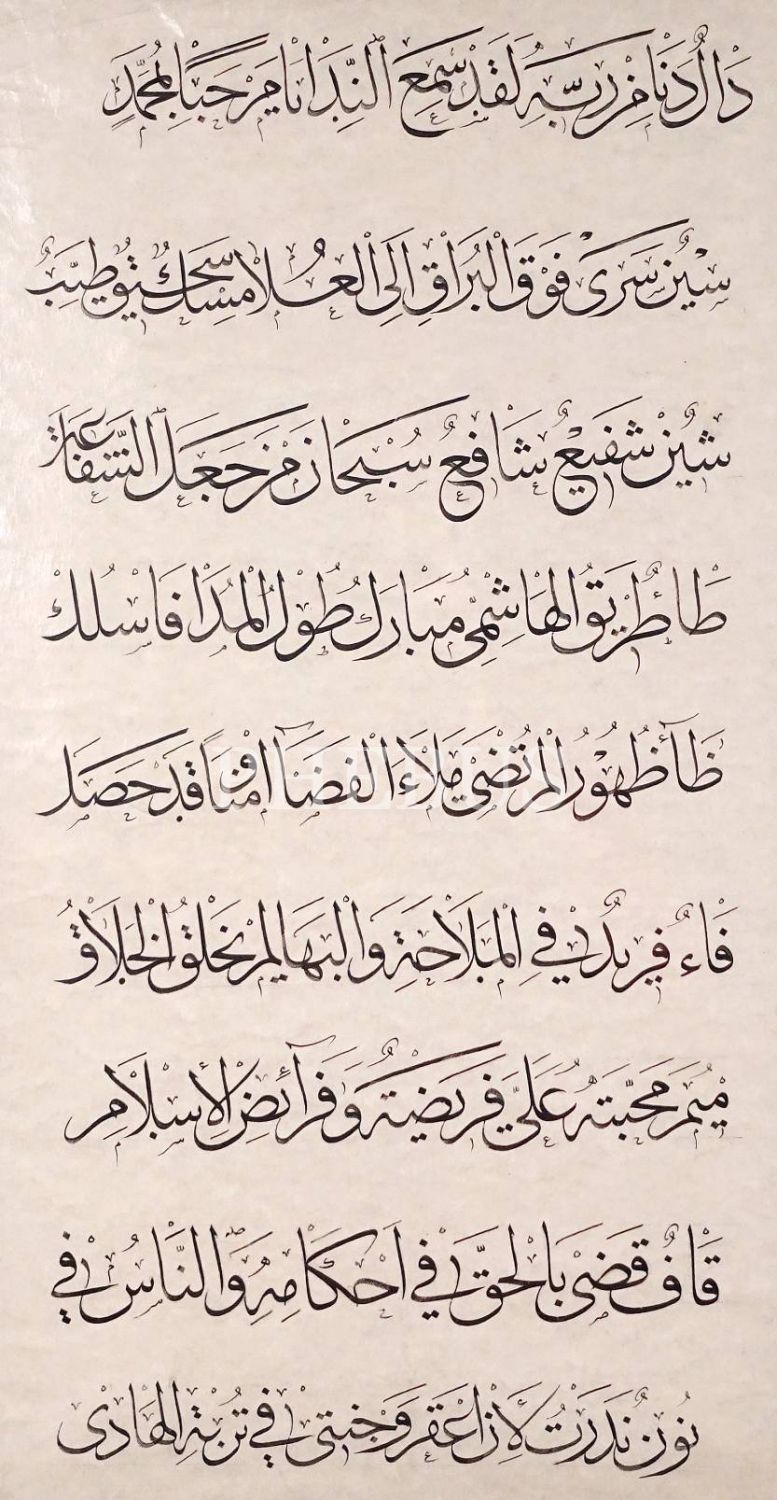 دَالٌ دَنَا مِنْ رَبِّهِ لَقَدْ سَمِعَ النِّدَا نَا مَرْحَبًا بِمُحَمَّدٍ
سِينٌ سَرَى فَوْقَ الْبُرَاقِ إِلَى الْعُلَا مِسْكٌ سَحِيقٌ طَيِّبُ
شِينٌ شَفِيعٌ شَافِعٌ سُبْحَانَ مَنْ جَعَلَ الشَّفَاعَةَ
طَاءٌ طَرِيقُ الْهَاشِمِيِّ مُبَارَكٌ طُولُ الْمَدَا فَاسْلُكْ
ظَآءٌ ظُهُورُ الْمُرْتَضَى مَلَاءَ الْفَضَآ أَمْنًا وَقَدْ حَصَلَ
فَاءٌ فَرِيدٌ فِي الْمَلَاحَةِ وَالْبَهَا لَمْ يَخْلُقُ الْخَلَّاقُ
مِيمٌ مَحَبَّتُهُ عَلَيَّ فَرِيضَةٌ وَفَرَآئِضُ الْإِسْلَامِ
قَافٌ قَضَى بِالْحَقِّ فِي أَحْكَامِهِ وَالنَّاسُ فِي
نُونٌ نَذَرْتُ لَأَنْ أُعَفِّرَ وَجْنَتِي فِي تُرْبَةِ الْهَادِي